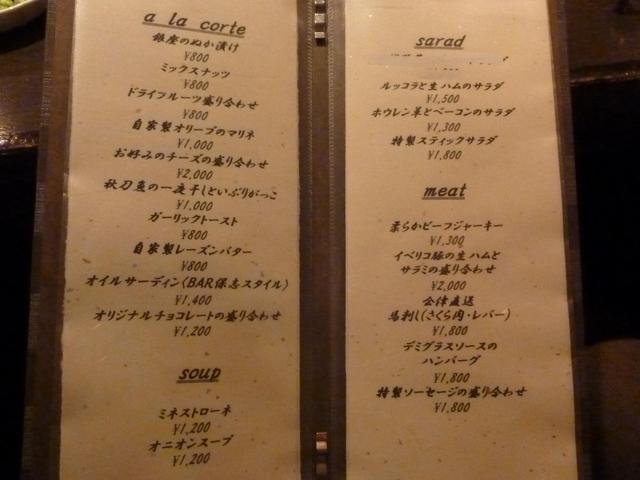 a la corte
銀座のぬか漬け
¥800
ミックスナッツ
¥800
ドライフルーツ盛り合わせ
¥800
自家製オリーブのマリネ
¥1,000
お好みのチーズの盛り合わせ
¥2,000
秋刀魚の一夜干しといぶりがっこ
¥1,000
ガーリックトースト
¥800
自家製レーズンバター
¥800
オイルサーディン〈BAR保志スタイル〉
¥1,400
オリジナルチョコレートの盛り合わせ
¥1,200
soup
ミネストローネ
¥1,200
オニオンスープ
¥1,200
sarad
ルッコラと生ハムのサラダ
¥1,500
ホウレン草とベーコンのサラダ
¥1,300
特製スティックサラダ
¥1,800
meat
柔らかビーフジャーキー
¥1,300
イベリコ豚の生ハムと
サラミの盛り合わせ
¥2,000
会津直送
馬刺し(さくら肉・レバー)
¥1,800
デミグラスソースの
ハンバーグ
¥1,800
特製ソーセージの盛り合わせ
¥1,800